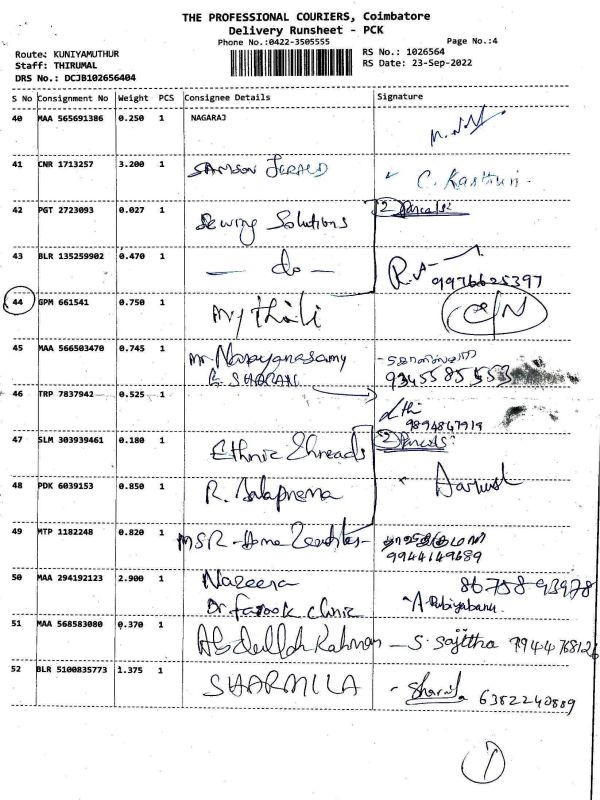 THE PROFESSIONAL COURIERS, Coimbatore
Delivery Runsheet - PCK
Phone No.:0422-3505555
Page No.:4
Route: KUNIYAMUTHUR
RS No.: 1026564
Staff: THIRUMAL
RS Date: 23-Sep-2022
DRS No.: DCJB102656404
S No Consignment No Weight PCS Consignee Details Signature
40 MAA 565691386 0.250 1 NAGARAJ
41 CNR 1713257 3.200 1 SAMSON JERALD C. Kasthuri
42 PGT 2723093 0.027 1 Sewing Solutions 2 Parcels
43 BLR 135259902 0.470 1 — do — 9976625397
44 GPM 661541 0.750 1 Mythili
45 MAA 566503470 0.745 1 Mr Narayanasamy
9345585553
46 TRP 7837942 0.525 1
9894847919
47 SLM 303939461 0.180 1 Ethnic Threads 2 Parcels
48 PDK 6039153 0.850 1 R. Balaprema
49 MTP 1182248 0.820 1 MSR - Home
9944149689
50 MAA 294192123 2.900 1 Nazeera 86758 93978
Dr farook clinic
51 MAA 568583080 0.370 1 Abdullah Rahman — S. Sajitha
52 BLR 5100835773 1.375 1 SHARMILA - Sharmila 6382240889
1